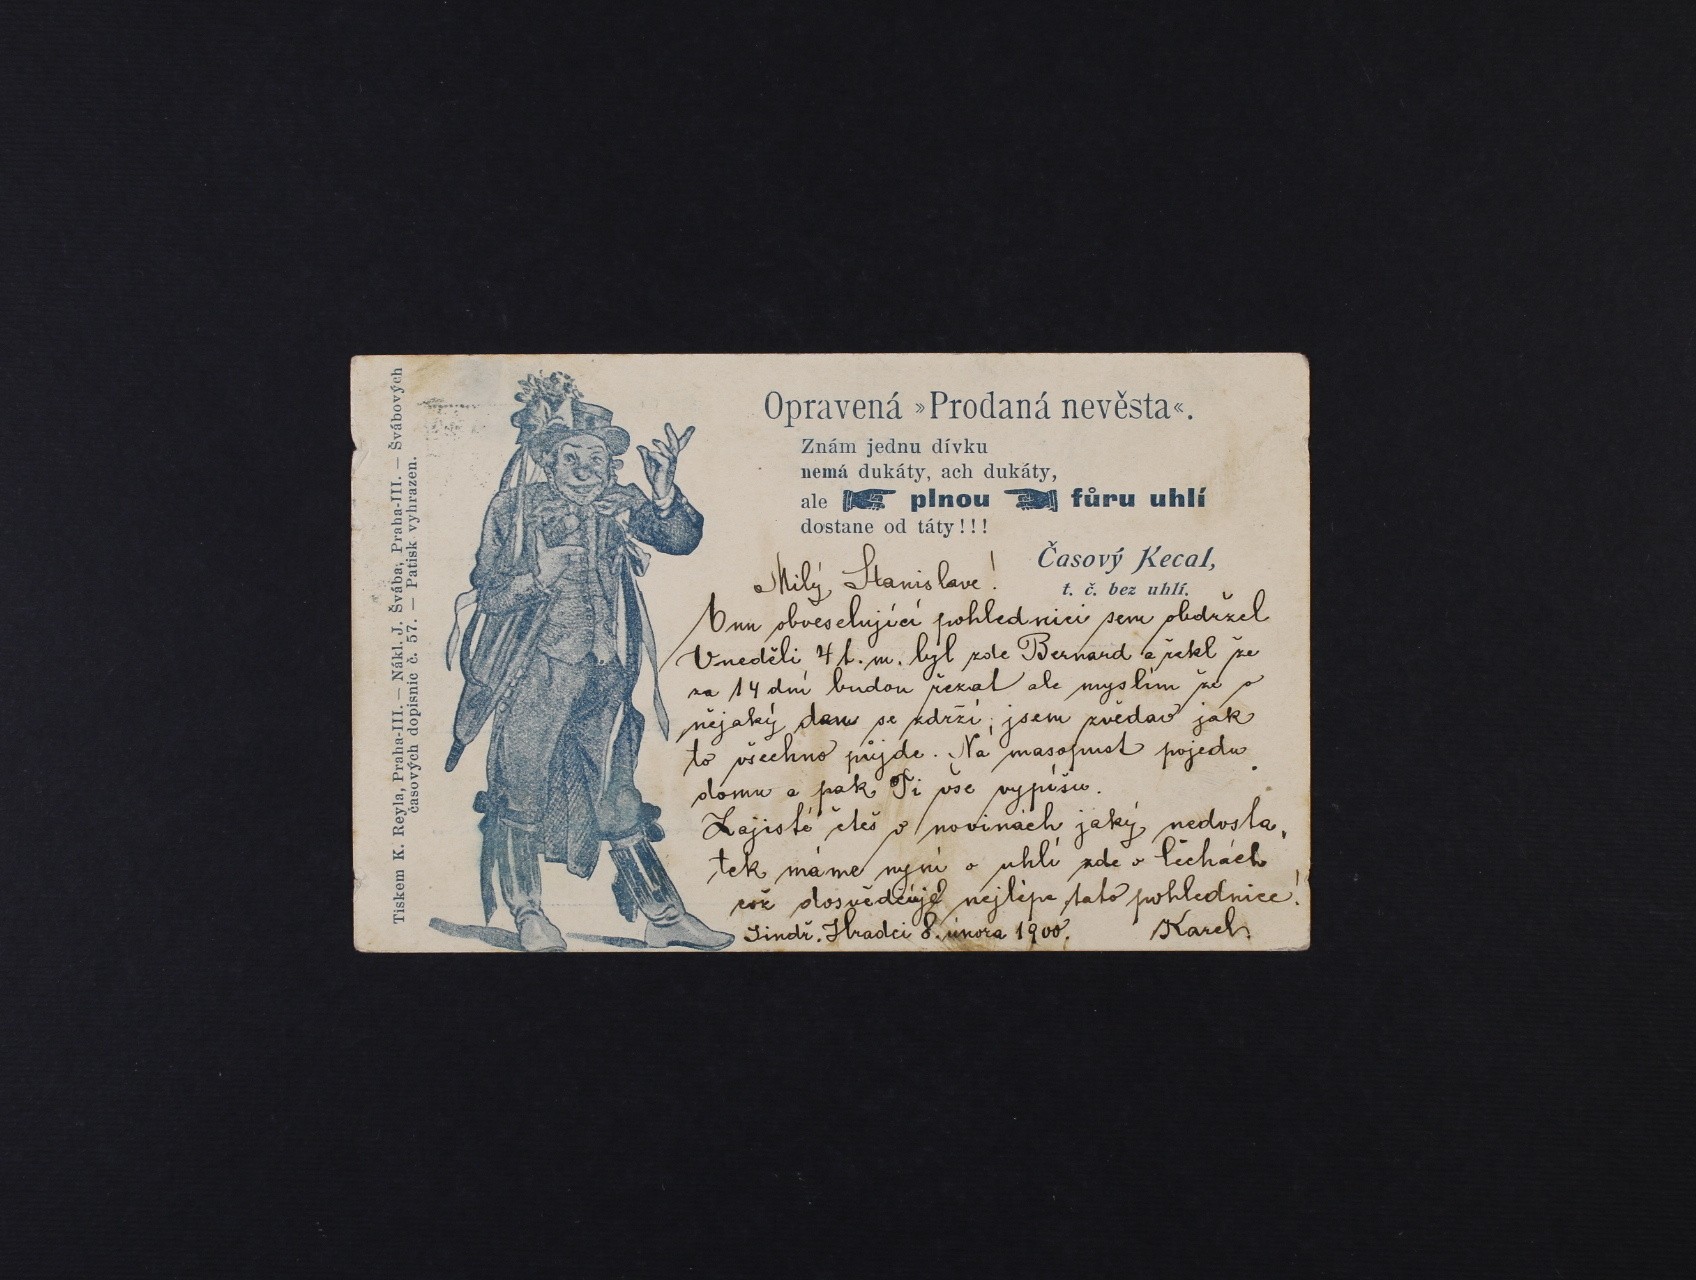 Tiskem K. Reyla, Praha-III. — Nákl. J. Švába, Praha-III. — Švábových
časových dopisnic č. 57. — Patisk vyhrazen.
Opravená »Prodaná nevěsta«.
Znám jednu dívku
nemá dukáty, ach dukáty,
ale plnou fůru uhlí
dostane od táty!!!
Časový Kecal,
t. č. bez uhlí.
Milý Stanislave!
obveselující pohlednici sem obdržel
Vneděli 4 t. m. byl zde Bernard a řekl že
za 14 dní budou řezat ale myslím že o
nějaký den se zdrží, jsem zvědav jak
to všechno půjde. Na masopust pojedu
domu a pak Ti vše vypíšu.
Zajisté čteš v novinách jaký nedosta,
tek máme nyní o uhlí zde v Čechách
což dosvědčuje nejlépe tato pohlednice!
Jindř. Hradci 8. února 1900. Karel.